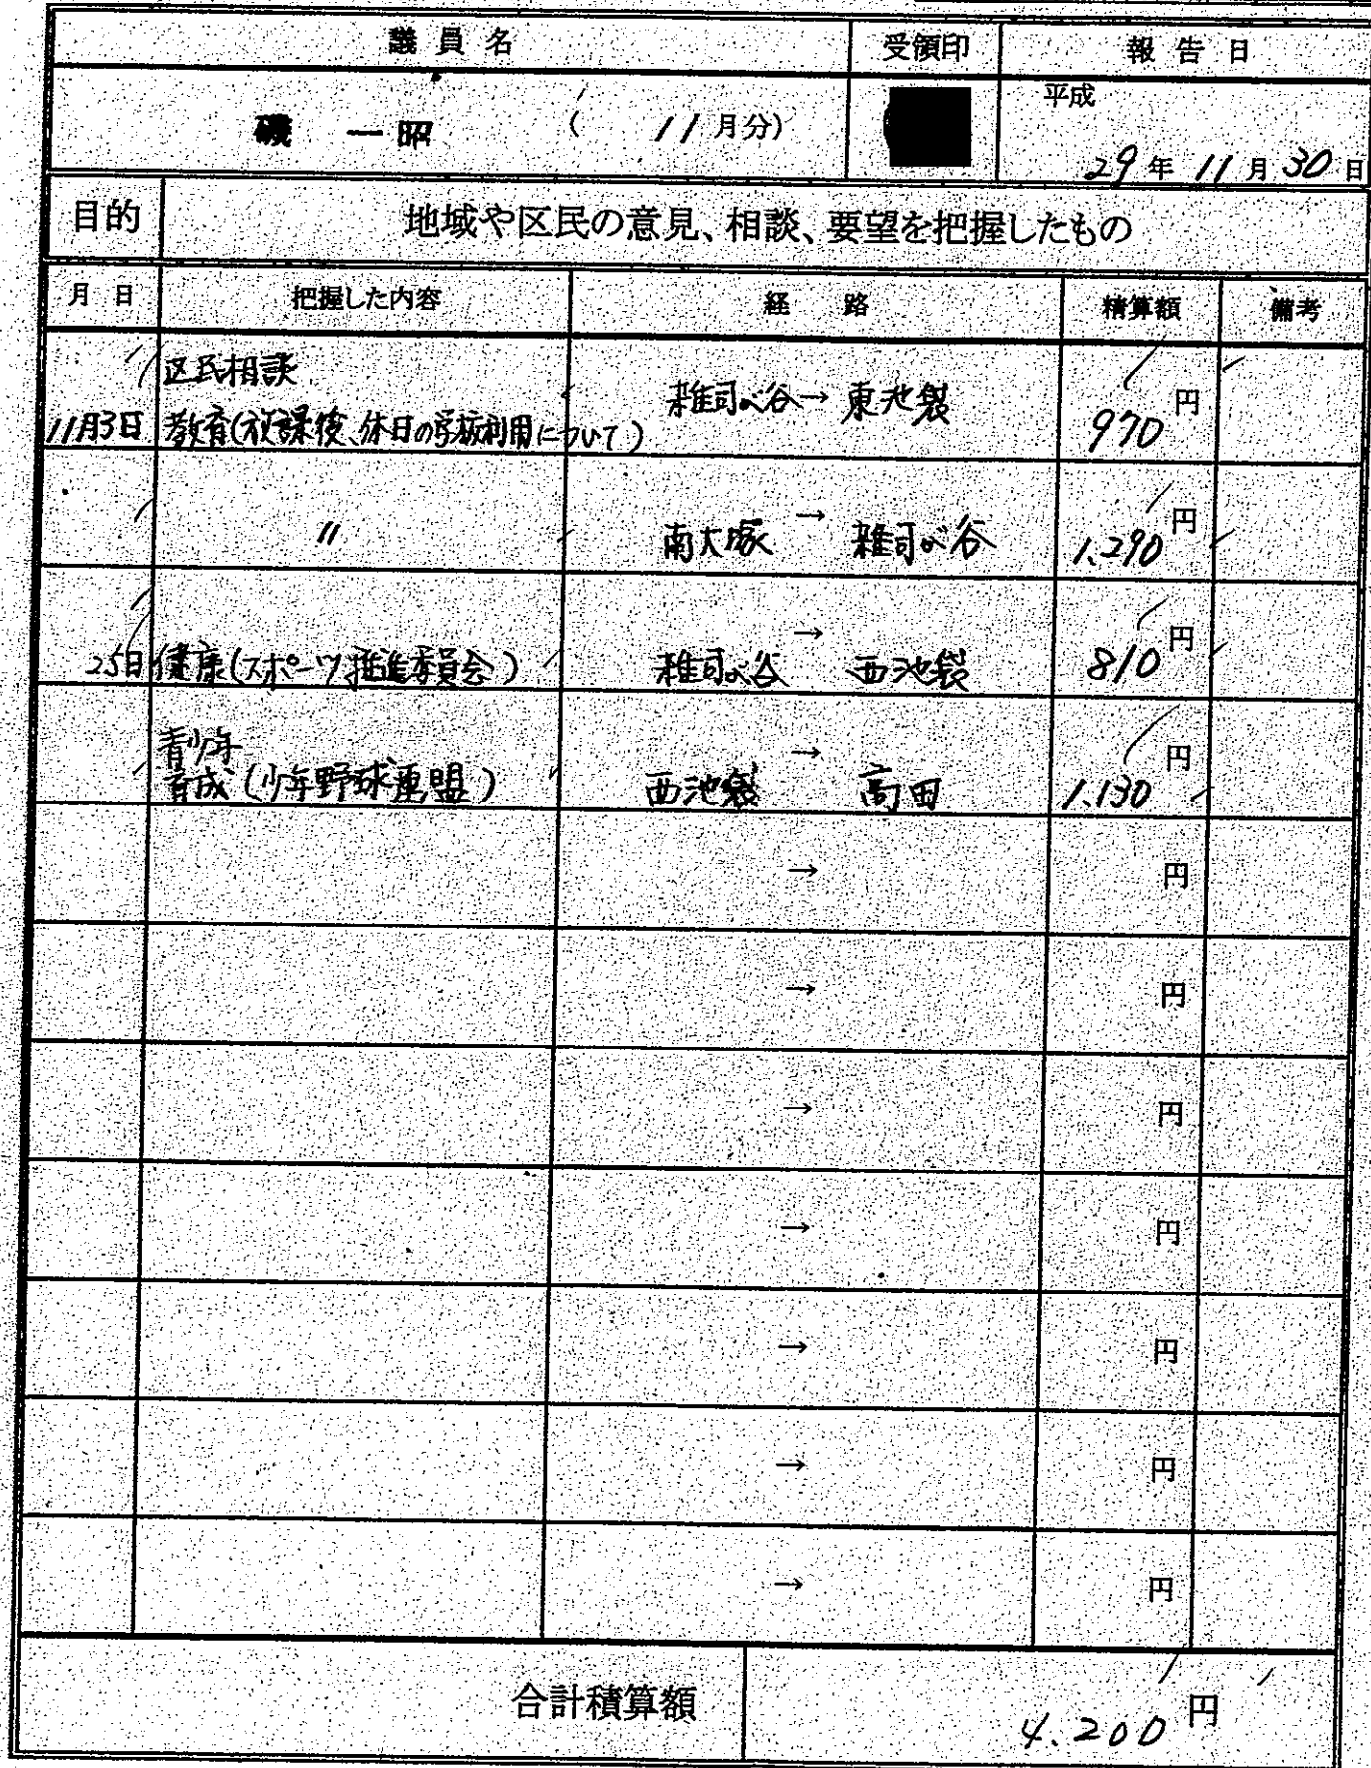 議員名 受領印 報告日
磯 一昭 ( 11月分) 平成
29年11月30日
目的 地域や区民の意見、相談、要望を把握したもの
月日 把握した内容 経路 精算額 備考
区民相談
11月3日 教育(放課後、休日の学校利用について) 雑司が谷→東池袋 970円
〃 南大塚→雑司が谷 1.290円
25日 健康(スポーツ推進委員会) 雑司が谷→西池袋 810円
青少年
育成(少年野球連盟) 西池袋→高田 1.130円
→ 円
→ 円
→ 円
→ 円
→ 円
→ 円
→ 円
合計積算額 4.200円